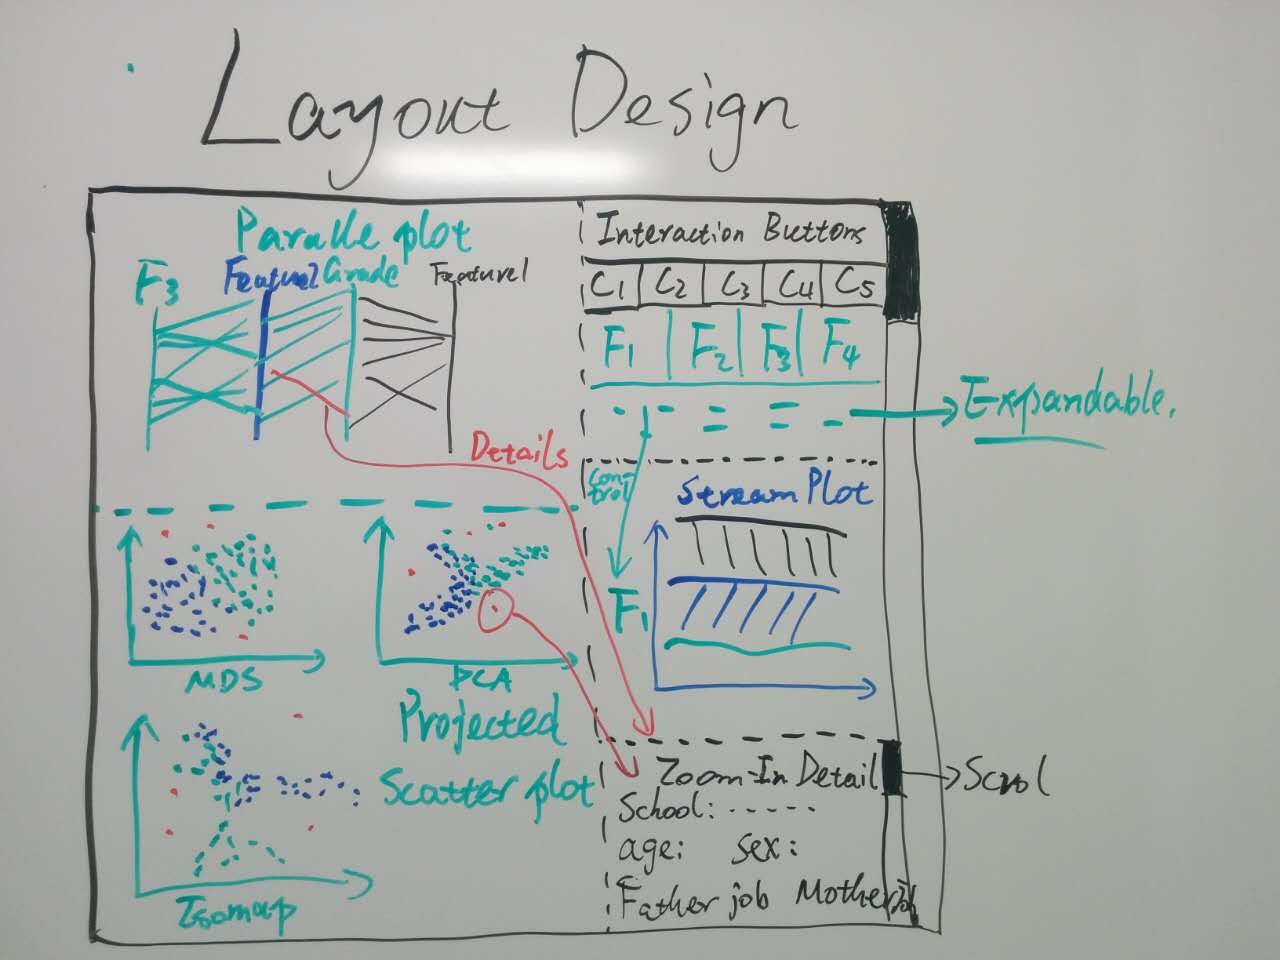 Layout Design
Paralle plot
F3 Feature2 Grade Feature1
Details
MDS
PCA
Projected
Scatter plot
Isomap
Interaction Buttons
C1 C2 C3 C4 C5
F1 F2 F3 F4
Expandable.
Con-
trol
Stream Plot
F1
Zoom-In Detail
School: -----
age: sex:
Father job Mother job
Scrol